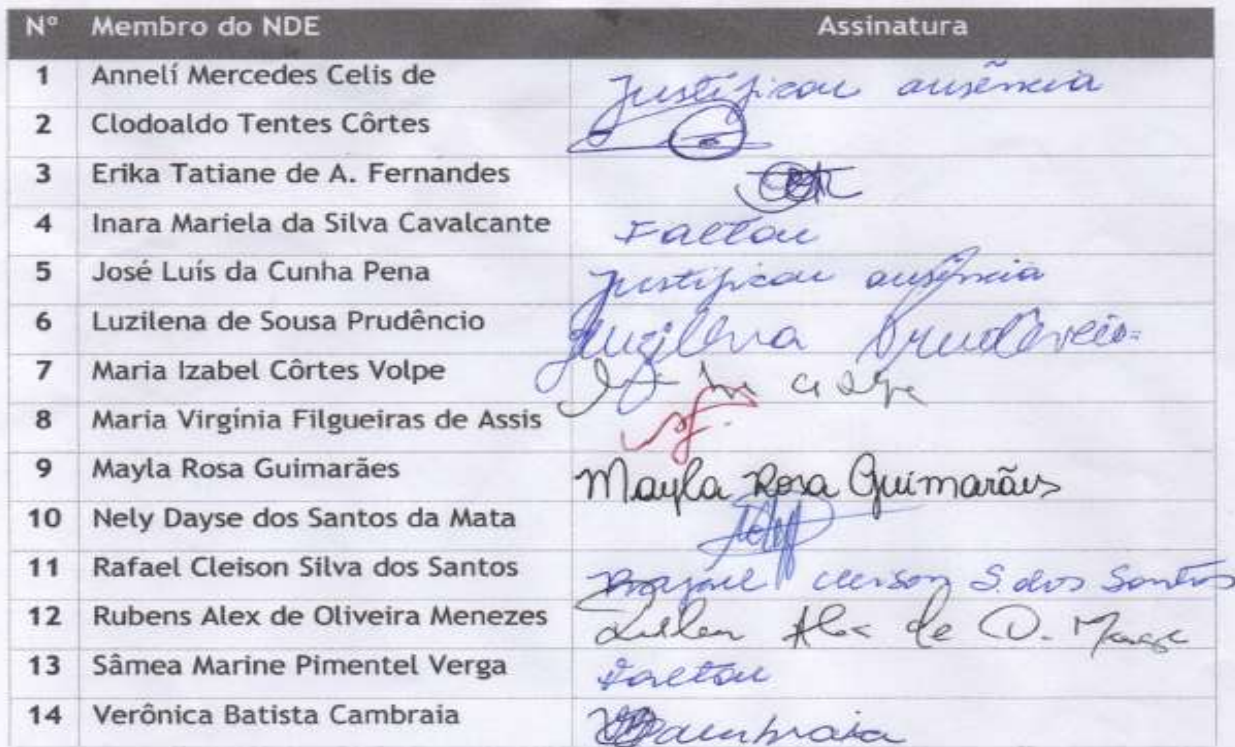 Nº Membro do NDE Assinatura
1 Annelí Mercedes Celis de Justificou ausência
2 Clodoaldo Tentes Côrtes
3 Erika Tatiane de A. Fernandes
4 Inara Mariela da Silva Cavalcante Faltou
5 José Luís da Cunha Pena Justificou ausência
6 Luzilena de Sousa Prudêncio Luzilena Prudêncio
7 Maria Izabel Côrtes Volpe
8 Maria Virgínia Filgueiras de Assis
9 Mayla Rosa Guimarães Mayla Rosa Guimarães
10 Nely Dayse dos Santos da Mata
11 Rafael Cleison Silva dos Santos Rafael Cleison S. dos Santos
12 Rubens Alex de Oliveira Menezes Rubens Alex de O. Menezes
13 Sâmea Marine Pimentel Verga Faltou
14 Verônica Batista Cambraia Cambraia